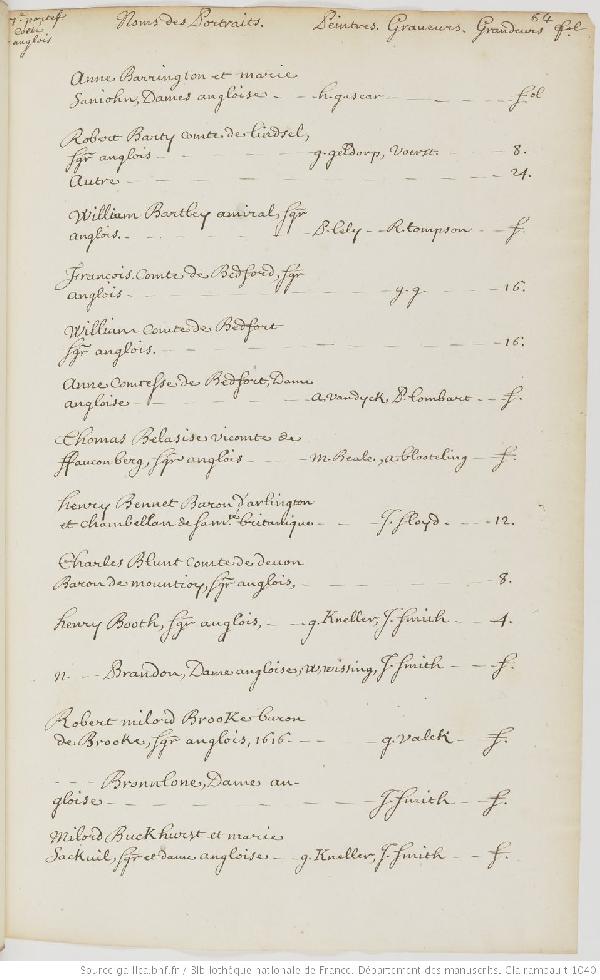 64
7e portef
Noms des Portraits. Peintres. Graveurs. Grandeurs fol
anglois
Anne Barrington et marie
Sanjohn, Dames angloise - - h. gascar - - - - fol
Robert Barty comte de lindsel,
sgr anglois - - - g. geldorp, Voerst. - - - 8.
Autre - - - - 24.
William Bartley amiral, sgr
anglois. - - - - P. lely - R. tompson - - f.
François. Comte de Bedford, sgr
anglois - - - - g. g. - - - 16.
William Comte de Bedfort
sgr anglois. - - - - 16.
Anne Comtesse de Bedfort, Dame
angloise - - - - A. vandyck P. lombart - - f.
Thomas Belasise vicomte de
ffauconberg, sgr anglois - - - m. Beale, a blooteling - f.
henry Bennet Baron d'arlington
et Chambellan de sa mté britanique - - - J. lloyd. - - - 12.
Charles Blunt Comte de devon
Baron de mountioy, sgr anglois, - - - - 8.
henry Booth, sgr anglois, - - g. Kneller, J. Smith - - 4.
n. - - Brandon, Dame angloise, W. wissing, J. Smith - - f.
Robert milord Brooke baron
de Brooke, sgr anglois, 1616 - - - g. valck - f.
- - - Brounlone, Dame an-
gloise - - - - J. Smith - - f.
Milord Buckhurst et marie
Sackuil, sgr et dame angloise - - g. Kneller, J. Smith - - f.
Source gallica.bnf.fr / Bibliothèque nationale de France. Département des manuscrits. Clairambault 1040